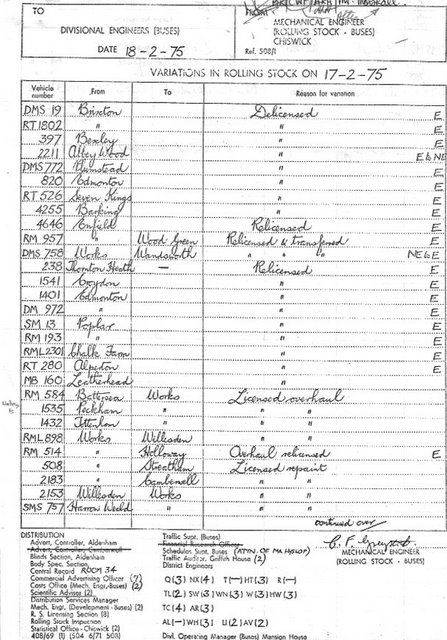 TO
DIVISIONAL ENGINEERS (BUSES)
DATE 18-2-75
FROM
MECHANICAL ENGINEER
(ROLLING STOCK - BUSES)
CHISWICK
Ref. 508/1
VARIATIONS IN ROLLING STOCK ON 17-2-75
Vehicle number From To Reason for variation
DMS 19 Brixton Delicensed E
RT 1802 " " E
397 Bexley " E
2211 Abbey Wood " E to NE
DMS 772 Plumstead " E
820 Edmonton " E
RT 526 Seven Kings " E
4255 Barking " E
4646 Enfield Relicensed E
RM 957 " Wood Green Relicensed & transferred E
DMS 758 Works Wandsworth " " " NE to E
238 Thornton Heath — Relicensed E
1541 Croydon " E
1401 Edmonton " E
DM 972 " " E
SM 13 Poplar " E
RM 193 " " E
RML 2301 Chalk Farm " E
RT 280 Alperton " E
MB 160 Leatherhead "
RM 584 Battersea Works Licensed overhaul
1535 Peckham " " "
1432 Tottenham " " "
RML 898 Works Willesden " "
RM 514 " Holloway Overhaul relicensed E
508 " Streatham Licensed repaint
2183 " Camberwell " "
2153 Willesden Works " "
SMS 757 Harrow Weald " " "
continued over
MECHANICAL ENGINEER
(ROLLING STOCK - BUSES)
DISTRIBUTION
Advert. Controller, Aldenham
Advert. Controller, Camberwell
Blinds Section, Aldenham
Body Spec. Section
Central Record ROOM 34
Commercial Advertising Officer (7)
Costs Office (Mech. Engr.-Buses) (2)
Scientific Advisor (2)
Distribution Services Manager
Mech. Engr. (Development - Buses) (2)
R. S. Licensing Section (8)
Rolling Stock Inspection
Statistical Office - Chiswick (2)
408/69 (1) (504 6/71 508)
Traffic Supt. (Buses)
Financial Research Officer
Schedules Supt. Buses (ATTN. OF MR HISLOP)
Traffic Auditor, Griffith House (2)
District Engineers
Q (3) NX (4) T (—) HT (3) R (—)
TL (2) SW (3) WN (3) W (3) HW (3)
TC (4) AR (3)
AL (—) WH (3) U (2) AV (2)
Divl. Operating Manager (Buses) Mansion House